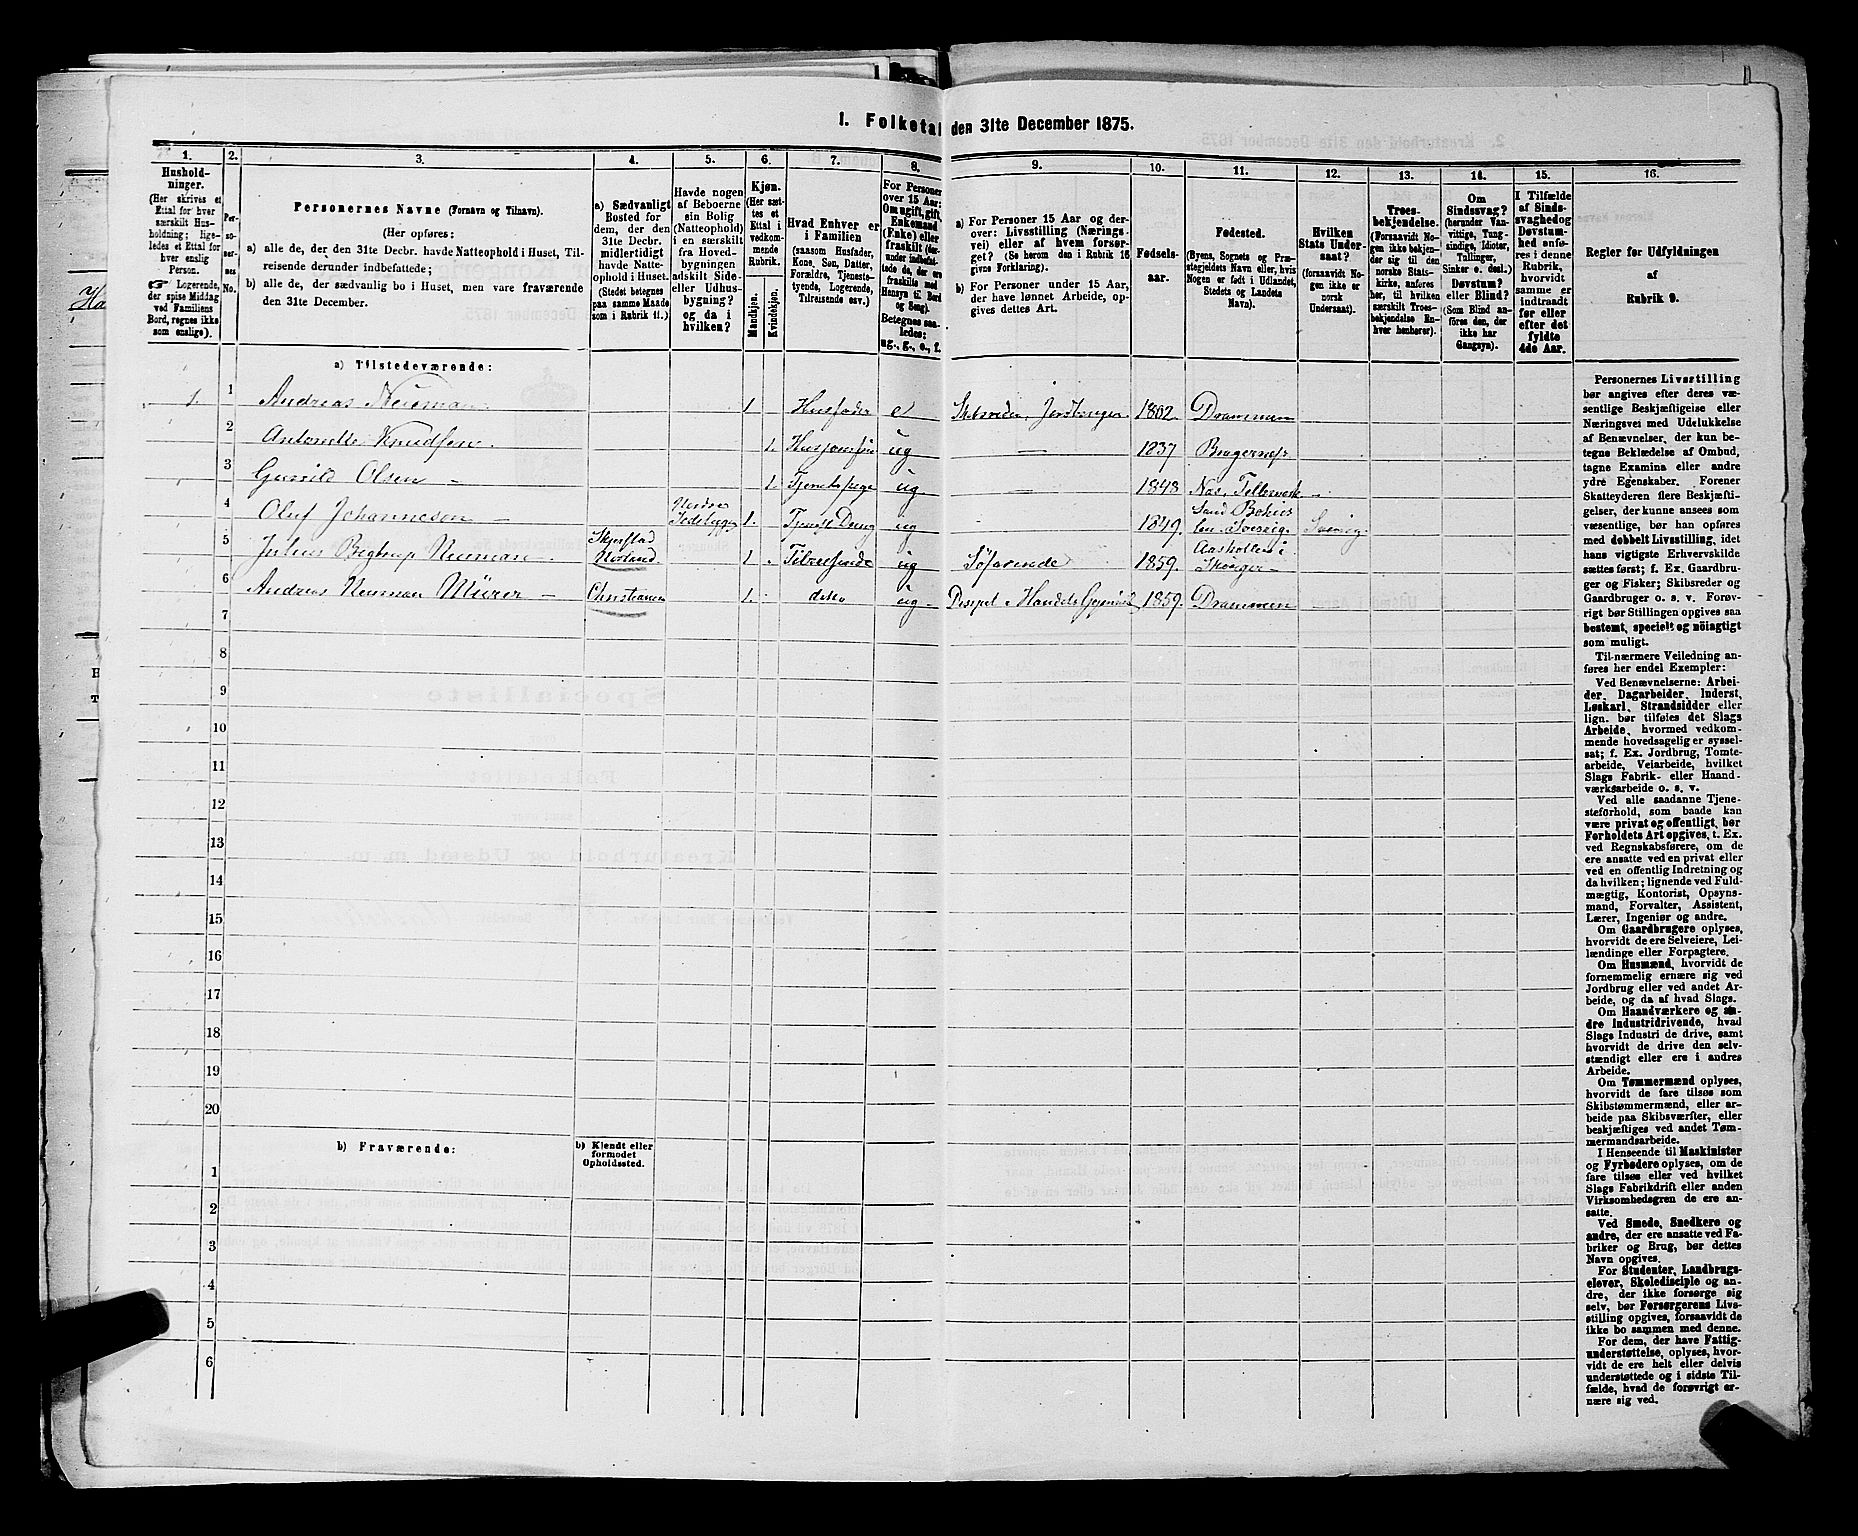 1. Folketal den 31te December 1875.
1. 2. 3. 4. 5. 6. 7. 8. 9. 10. 11. 12. 13. 14. 15. 16.
Hushold-
ninger.
(Her skrives et
Ettal for hver
særskilt Hus-
holdning; lige-
ledes et Ettal for
hver enslig
Person.
Logerende,
der spise Middag
ved Familiens
Bord, regnes ikke
som enslige).
Per-
so-
ner-
nes
No.
Personernes Navne (Fornavn og Tilnavn).
(Her opføres:
a) alle de, der den 31te Decbr. havde Natteophold i Huset, Til-
reisende derunder indbefattede;
b) alle de, der sædvanlig bo i Huset, men vare fraværende
den 31te December.
a) Sædvanligt
Bosted for
dem, der den
31te Decbr.
midlertidigt
havde Natte-
ophold i Huset.
(Stedet betegnes
paa samme Maade
som i Rubrik 11.)
Havde nogen
af Beboerne
sin Bolig
(Natteophold)
i en særskilt
fra Hoved-
bygningen
adskilt Side-
eller Udhus-
bygning?
og da i
hvilken?
Kjøn.
(Her sæt-
tes et
Ettal i
vedkom-
mende
Rubrik.
Mandkjøn.
Kvindekjøn.
Hvad Enhver er
i Familien
(saasom Husfader,
Kone, Søn, Datter,
Forældre, Tjeneste-
tyende, Logerende,
Tilreisende osv.)
For Personer
over 15 Aar:
Om ugift, gift,
Enkemand
(Enke) eller
fraskilt
Betegnes saa-
ledes:
ug., g., e., f.
a) For Personer 15 Aar og der-
over: Livsstilling (Nærings-
vei) eller af hvem forsør-
get? (Se herom den i Rubrik 16
givne Forklaring).
b) For Personer under 15 Aar,
der have lønnet Arbeide, op-
gives dettes Art.
Fødsels-
aar.
Fødested.
(Byens, Sognets og Præ-
stegjeldets Navn eller, hvis
Nogen er født i Udlandet,
Stedets og Landets
Navn).
Hvilken
Stats Under-
saat?
(forsaavidt No-
gen ikke er
norsk
Undersaat).
Troes-
bekjendelse.
(Forsaavidt No-
gen ikke bekjen-
der sig til den
norske Stats-
kirke, anføres
her, til hvilken
særskilt Troes-
bekjendelse En-
hver henhører).
Om
Sindssvag?
(herunder Van-
vittige, Tung-
sindige, Idioter,
Tullinger,
Sinker o. desl.)
Døvstum?
eller Blind?
(Som Blind an-
føres den, der
ikke har
Gangsyn).
I Tilfælde
af Sinds-
svaghed og
Døvstum-
hed anfø-
res i denne
Rubrik,
hvorvidt
samme er
indtraadt
før eller
efter det
fyldte
4de Aar.
Regler før Udfyldningen
af
Rubrik 9.
a) Tilstedeværende:
1. 1 Andreas Neuman 1 Husfader e Skibsreder, Jordbruger 1802. Drammen
2 Antonette Knudsen 1. Husjomfru ug 1837 Bragernes
3 Gunild Olsen 1. Tjenstepige ug 1848 Næs
4 Oluf Johanneson 1. Tjenste Dreng ug 1849 Sverig. Sverig.
5 Julius Neuman Skjerstad
Norland 1 Tilreisende ug Søfarende 1859. Skouger
6 Andreas Neuman Mürer Christiania 1. detto ug 1859. Drammen
7
8
9
10
11
12
13
14
15
16
17
18
19
20
b) Fraværende:
b) Kjendt eller
formodet
Opholdssted.
1
2
3
4
5
6
Personernes Livsstilling
bør angives efter deres væ-
sentlige Beskjæftigelse eller
Næringsvei med Udelukkelse
af Benævnelser, der kun be-
tegne Beklædelse af Ombud,
tagne Examina eller andre
ydre Egenskaber. Forener
Skatteyderen flere Beskjæfti-
gelser, der kunne ansees som
væsentlige, bør han opføres
med dobbelt Livsstilling, idet
hans vigtigste Erhvervskilde
sættes først; f. Ex. Gaardbru-
ger og Fisker; Skibsreder og
Gaardbruger o. s. v. Forøv-
rigt bør Stillingen opgives saa
bestemt, specielt og nöiagtigt
som muligt.
Til nærmere Veiledning an-
føres her endel Exempler:
Ved Benævnelserne: Arbei-
der, Dagarbeider, Inderst,
Løskarl, Strandsidder eller
lign. bør tilføies det Slags
Arbeide, hvormed vedkom-
mende hovedsagelig er syssel-
sat; f. Ex. Jordbrug, Tomte-
arbeide, Veiarbeide, hvilket
Slags Fabrik- eller Haand-
værksarbeide o. s. v.
Ved alle saadanne Tjene-
steforhold, som baade kan
være privat og offentligt, bør
Forholdets Art opgives, t. Ex.
ved Regnskabsførere, om de
ere ansatte ved en privat eller
ved en offentlig Indretning og
da hvilken; lignende ved Fuld-
mægtig, Kontorist, Opsyns-
mand, Forvalter, Assistent,
Lærer, Ingeniør og andre.
Om Gaardbrugere oplyses,
hvorvidt de ere Selveiere, Lei-
lændinge eller Forpagtere.
Om Husmænd, hvorvidt de
fornemmelig ernære sig ved
Jordbrug eller ved andet Ar-
beide, og da af hvad Slags.
Om Haandværkere og an-
dre Industridrivende, hvad
Slags Industri de drive, samt
hvorvidt de drive den selv-
stændigt eller ere i andres
Arbeide.
Om Tømmermænd oplyses,
hvorvidt de fare tilsøs som
Skibstømmermænd, eller ar-
beide paa Skibsværfter, eller
beskjæftiges ved andet Tøm-
mermandsarbeide.
I Henseende til Maskinister
og Fyrbødere oplyses, om de
fare tilsøs eller ved hvilket
Slags Fabrikdrift eller anden
Virksomhedsgren de ere an-
satte.
Ved Smede, Snedkere og
andre, der ere ansatte ved Fa-
briker og Brug, bør dettes
Navn opgives.
For Studenter, Landbrugs-
elever, Skoledisciple og an-
dre, der ikke forsørge sig
selv, bør Forsørgerens Livs-
stilling opgives, forsaavidt de
ikke bo sammen med denne.
For dem, der have Fattig-
understøttelse, oplyses, hvor-
vidt de ere helt eller delvis
understøttede og i sidste Til-
fælde, hvad de forøvrigt er-
nære sig ved.